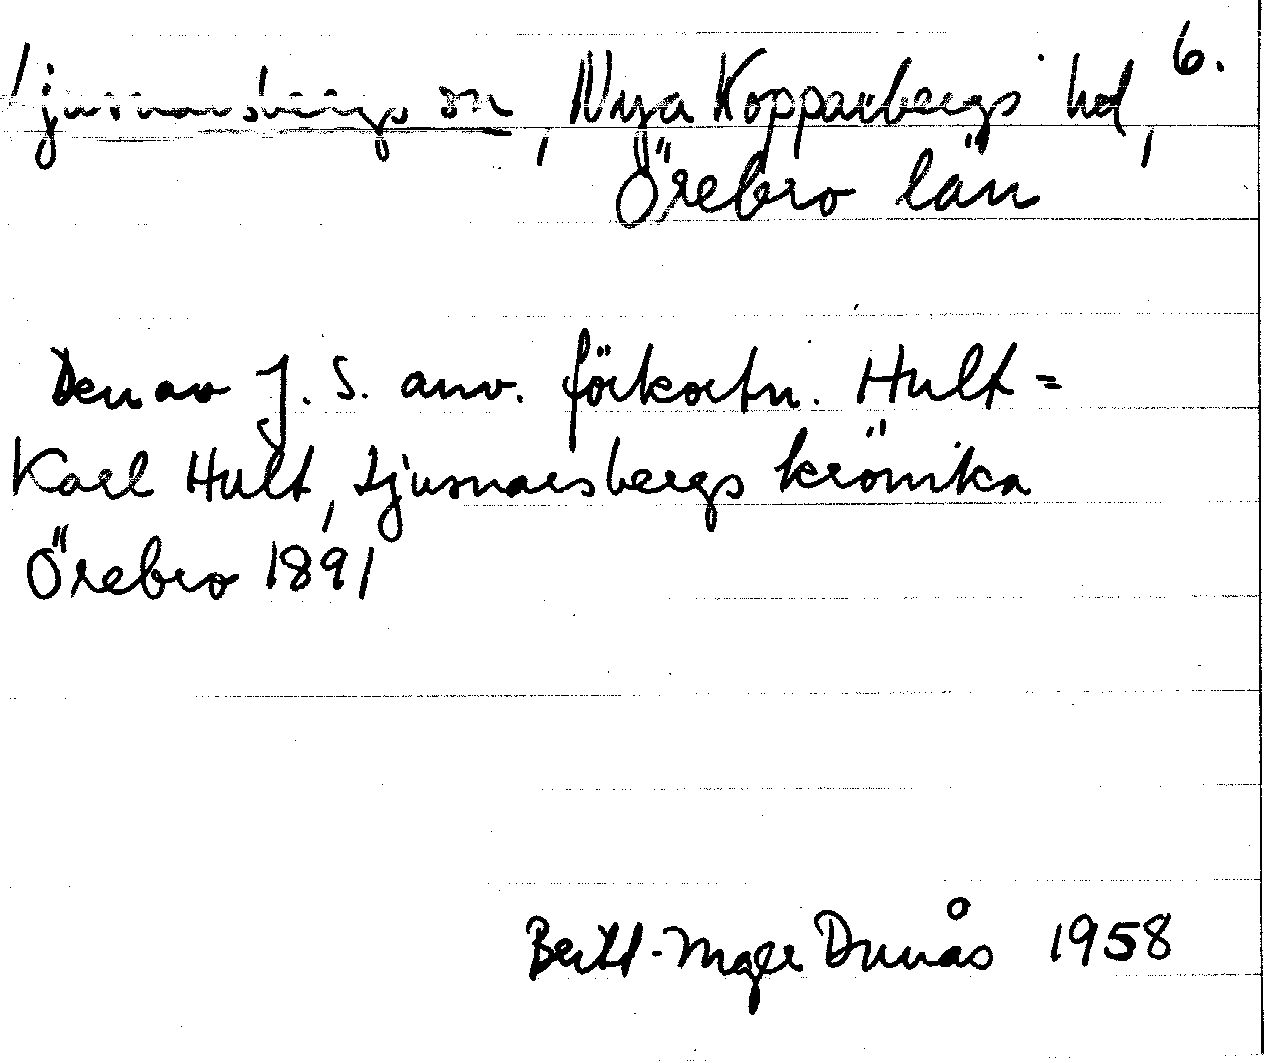 6.
Ljusnarsbergs sn, Nya Kopparbergs hd,
Örebro län
Den av J. S. anv. förkortn. Hult =
Karl Hult, Ljusnarsbergs krönika
Örebro 1891
Bertil-Inger Dunås 1958